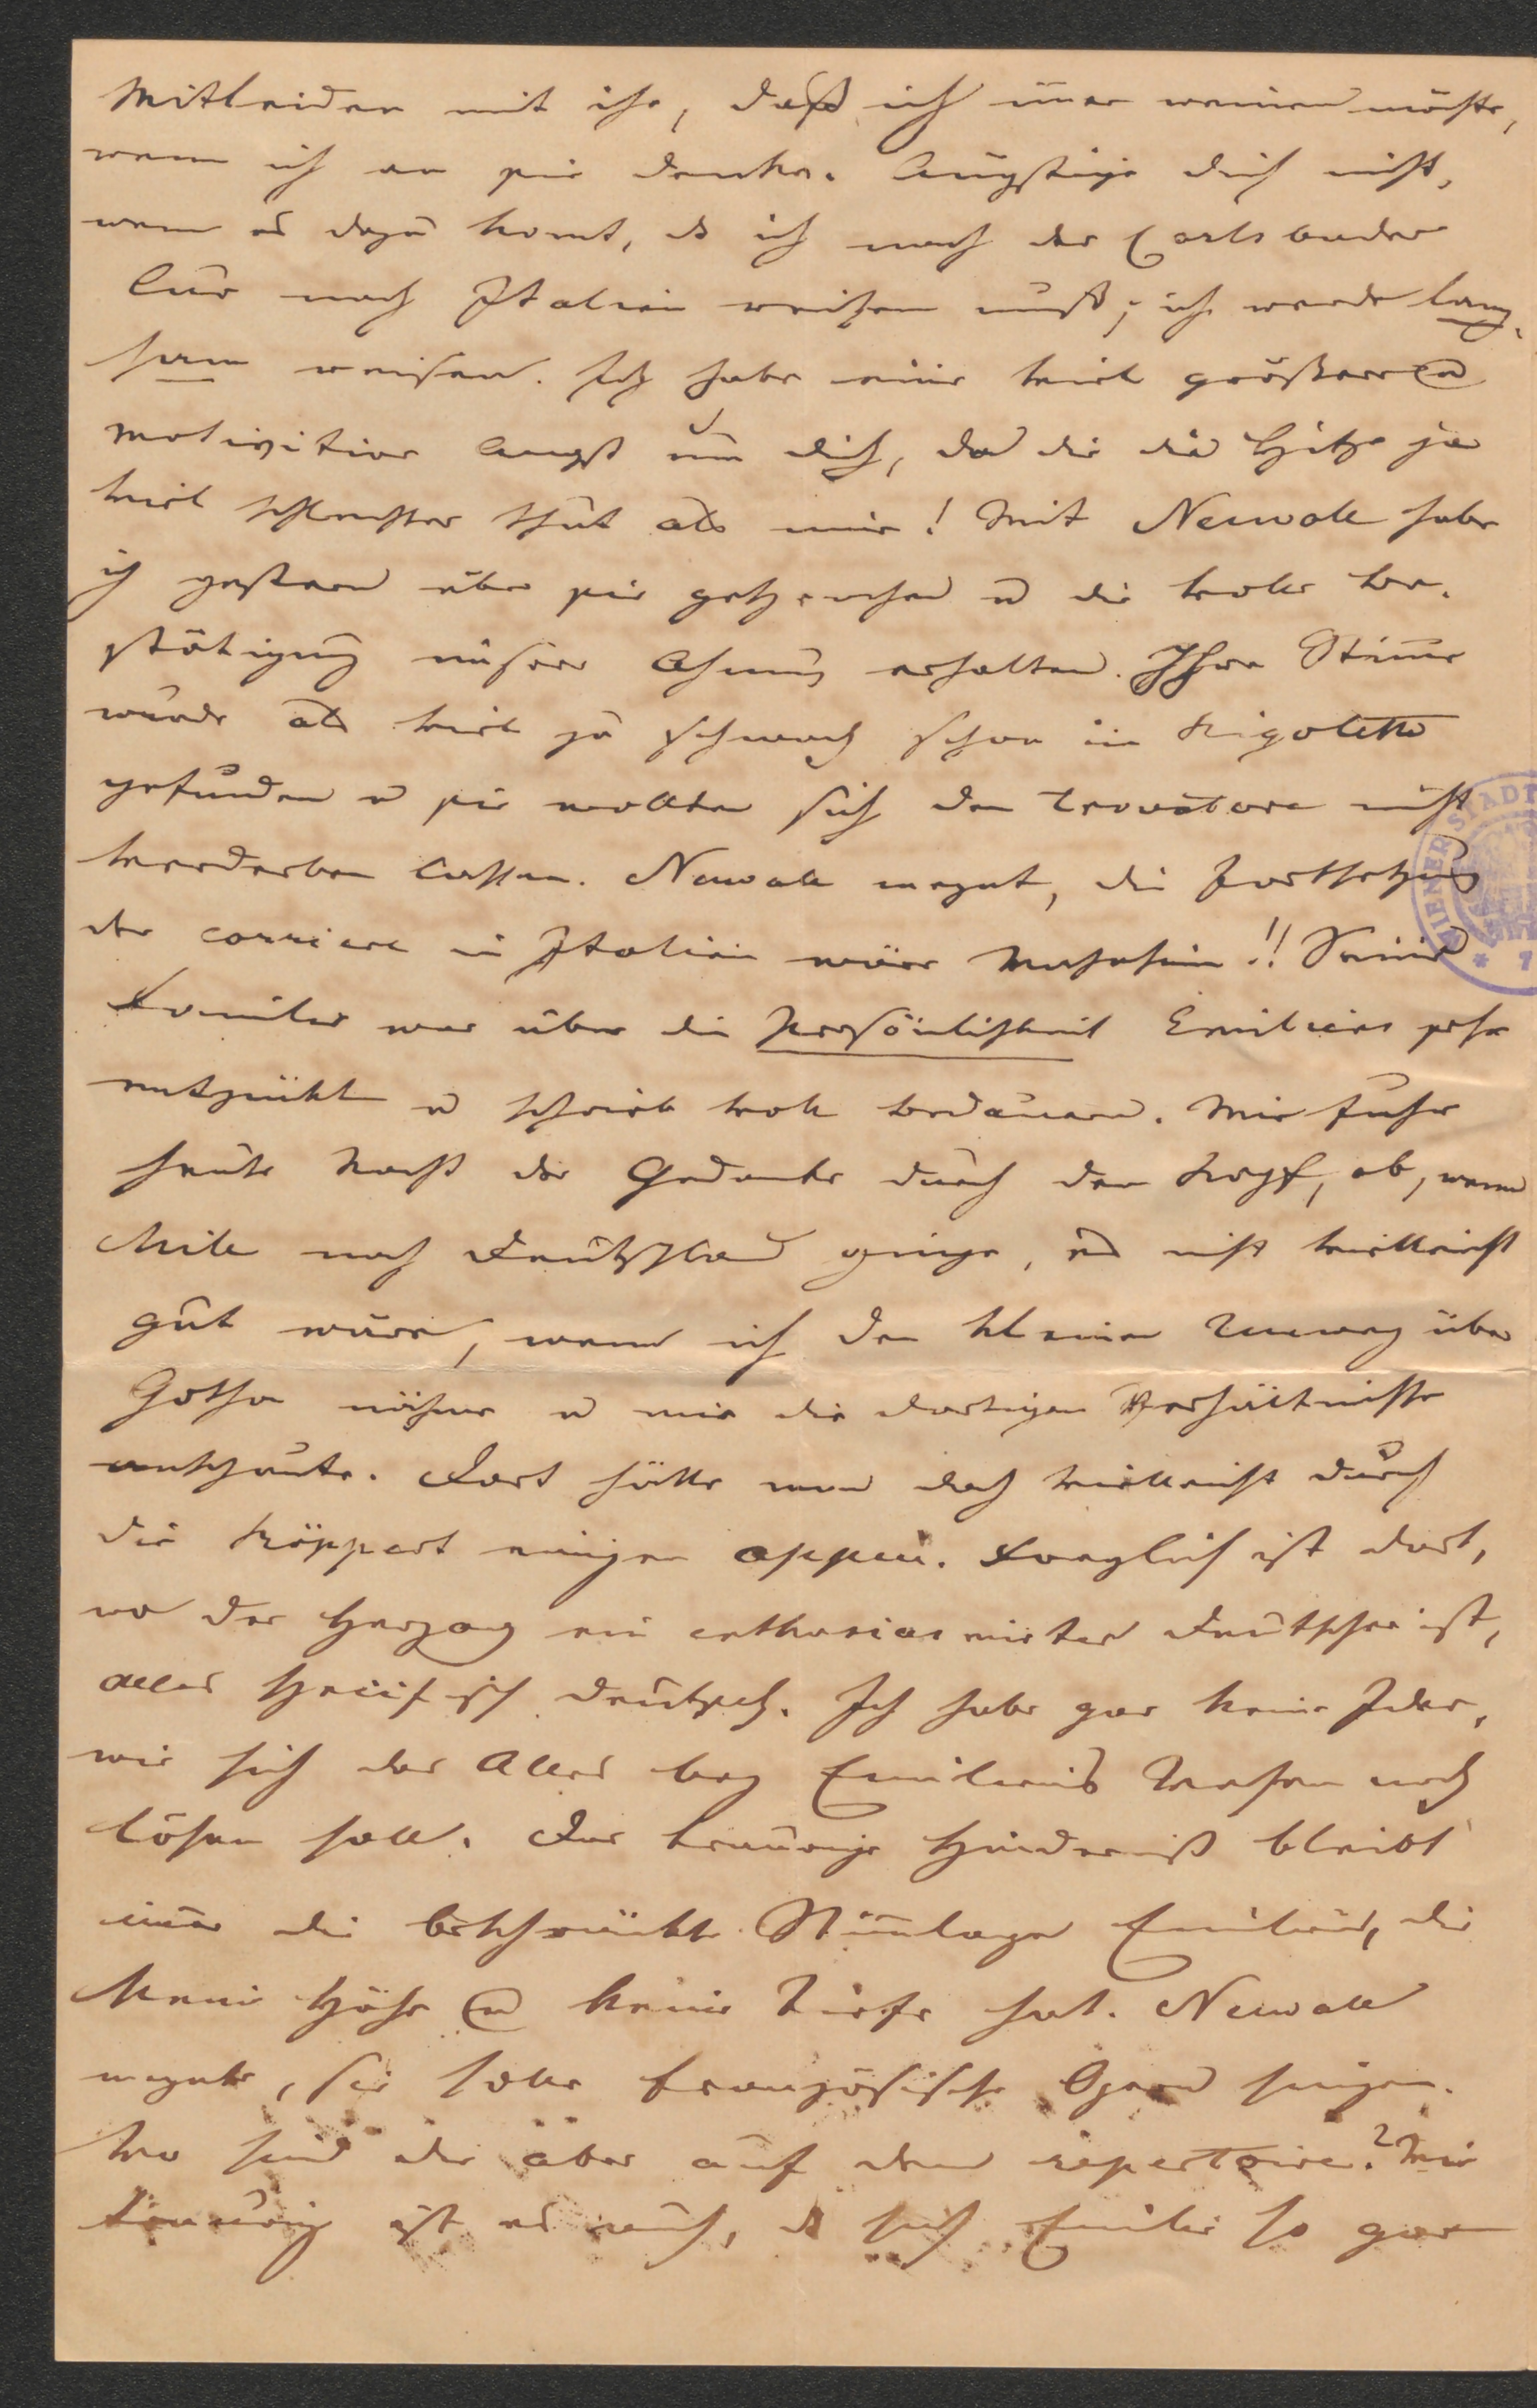 Mitleiden mit ihr, daß ich immer weinen möchte,
wenn ich an sie denke. Ängstige dich nicht,
wenn es dazu komt, ds ich nach der Carlsbader
Cur nach Italien reisen muß; ich werde lang-
sam reisen. Ich habe eine viel größere u
motivirtere Angst um dich, da dir die Hitze ja
viel schlechter thut als mir! Mit Neuwall habe
ich gestern über sie gesprochen u die volle Be-
stätigung unserer Ahnung erhalten. Ihre Stimme
wurde als viel zu schwach schon in Rigoletto
gefunden u sie wollten sich den Trovatore nicht
verderben lassen. Neuwall meynt, die Fortsetzung
der carriere in Italien wäre Wahnsinn!! Seine
Familie war über die Persönlichkeit Emiliens sehr
entzückt u schrieb voll Bedauern. Mir fuhr
heute Nacht der Gedanke durch den Kopf, ob, wenn
Mile nach Deutschland ginge, es nicht vielleicht
gut wäre, wenn ich den kleinen Umweg über
Gotha nähme u mir die dortigen Verhältnisse
anschaute. Dort hätte man doch vielleicht durch
die Köppert einigen appui. Freylich ist dort,
wo der Herzog ein enthusiasmirter Deutscher ist,
alles deutsch. Ich habe gar keine Idee,
wie sich das Alles bey Emiliens Wesen noch
lösen soll. Das traurige Hinderniß bleibt
immer die beschränkte Stimmlage Emiliens, die
keine Höhe u keine Tiefe hat. Neuwall
meynte, sie solle französische Opern singen.
Wo sind die aber auf dem repertoire? Mir
traurig ist es auch, ds sich Emilie so gar